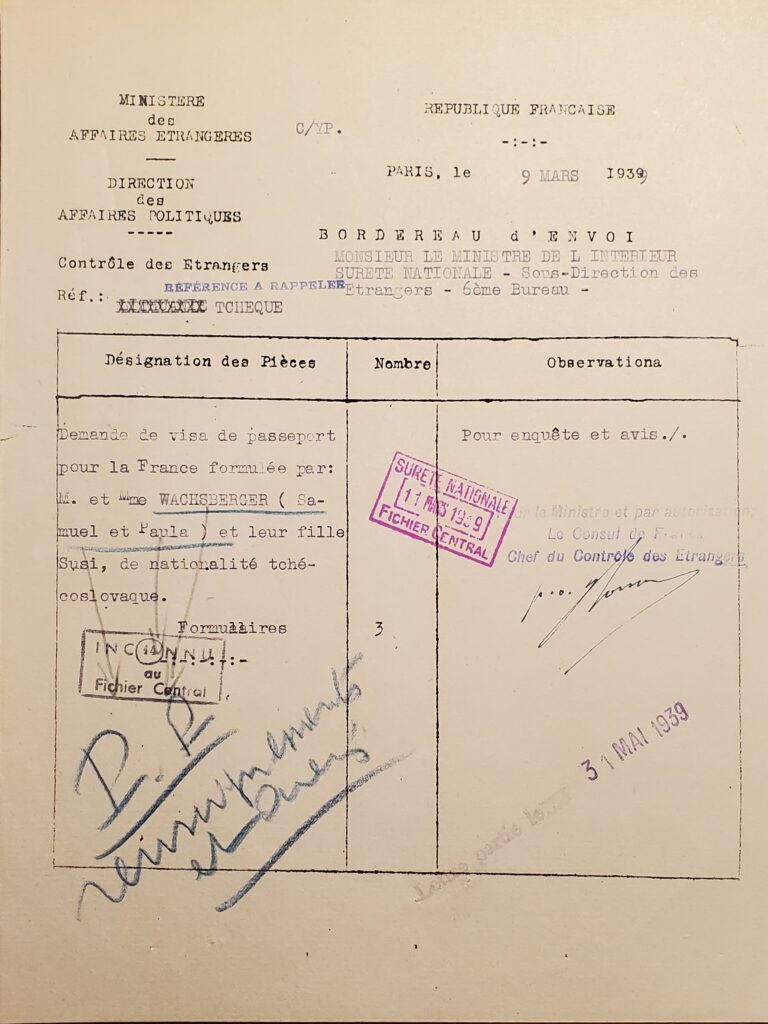 MINISTERE
des
AFFAIRES ETRANGERES
C/YP.
REPUBLIQUE FRANCAISE
-:-:-
DIRECTION
des
AFFAIRES POLITIQUES
-----
PARIS, le 9 MARS 1939
BORDEREAU d'ENVOI
MONSIEUR LE MINISTRE DE L INTERIEUR
SURETE NATIONALE - Sous-Direction des
Etrangers - 6ème Bureau -
Contrôle des Etrangers
RÉFÉRENCE A RAPPELER
Réf.: TCHEQUE
Désignation des Pièces
Nombre
Observationa
Demande de visa de passeport
pour la France formulée par:
M. et Mme WACHSBERGER ( Sa-
muel et Paula ) et leur fille
Susi, de nationalité tché-
coslovaque.
Formulaires
-:-:-:-:-
3
Pour enquête et avis./.
SURETÉ NATIONALE
11 MARS 1939
FICHIER CENTRAL
le Ministre et par autorisation
Le Consul de France
Chef du Contrôle des Etrangers
p.o.
INCONNU
14
au
Fichier Central
P.P
renseignements
et avis
31 MAI 1939
Lettre partie le